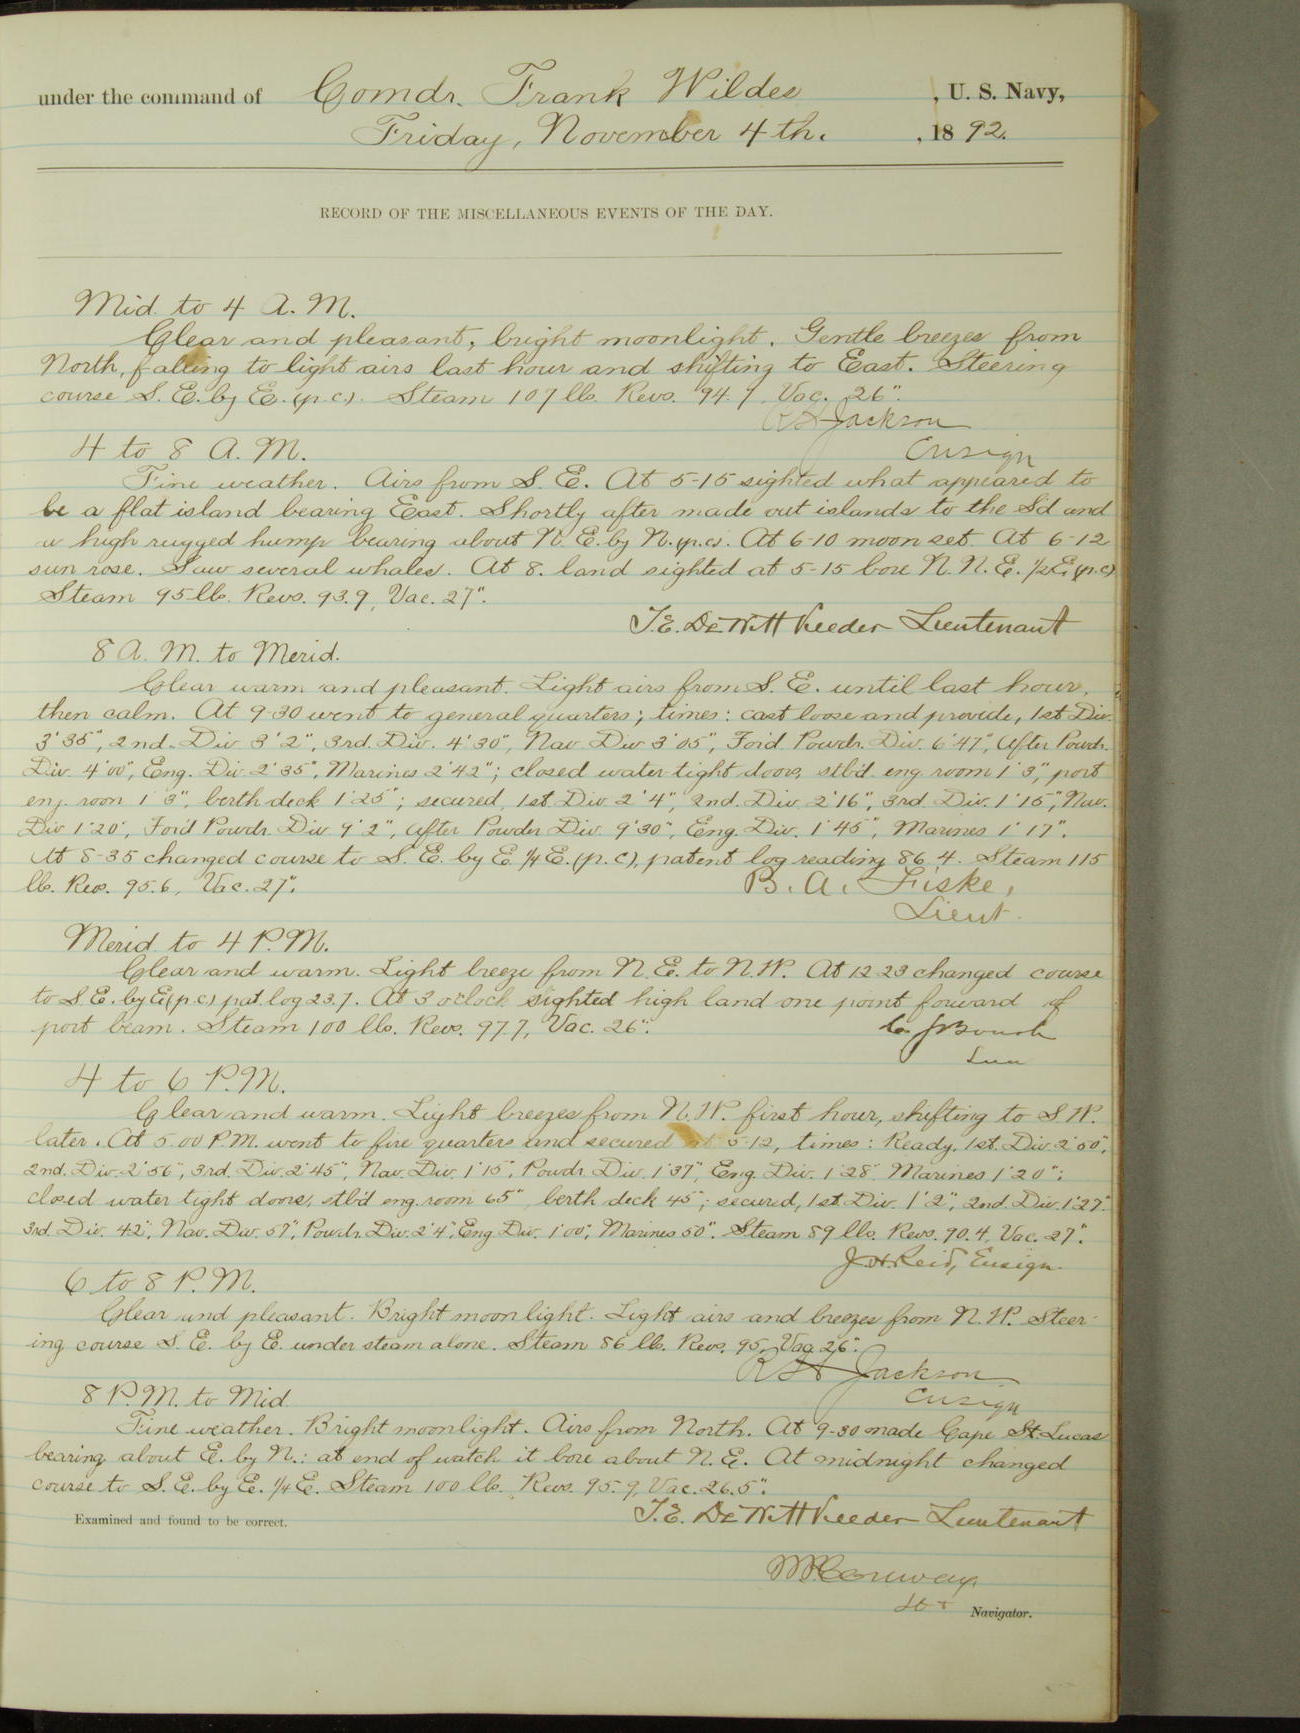 under the command of Comdr. Frank Wildes , U. S. Navy,
Friday, November 4th. , 1892.
RECORD OF THE MISCELLANEOUS EVENTS OF THE DAY.
Mid. to 4 A. M.
Clear and pleasant, bright moonlight. Gentle breezes from
North, falling to light airs last hour and shifting to East. Steering
course S. E. by E. (p.c.). Steam 107 lb. Revs. 94.7, Vac. 26".
R H Jackson
Ensign
4 to 8 A. M.
Fine weather. Airs from S. E. At 5-15 sighted what appeared to
be a flat island bearing East. Shortly after made out islands to the Sd and
a high rugged hump bearing about N. E. by N. (p.c.). At 6-10 moon set. At 6-12
sun rose. Saw several whales. At 8. land sighted at 5-15 bore N. N. E. 1/2 E. (p.c.)
Steam 95 lb. Revs. 93.9, Vac. 27".
T. E. DeWitt Veeder Lieutenant
8 A. M. to Merid.
Clear warm and pleasant. Light airs from S. E. until last hour,
then calm. At 9-30 went to general quarters; times: cast loose and provide, 1st Div.
3'35", 2nd. Div 3'2", 3rd. Div. 4'30", Nav Div 3'05", For'd. Powdr. Div. 6'47", After Powdr.
Div. 4'00", Eng. Div. 2'35", Marines 2'42"; closed water tight doors, stb'd. eng. room 1'3", port
eng. room 1'3", berth deck 1'25"; secured, 1st. Div 2'4", 2nd. Div 2'16", 3rd Div. 1'15", Nav.
Div 1'20", For'd Powdr. Div 9'2", After Powder Div. 9'30", Eng. Div. 1'45", Marines 1'17".
At 8-35 changed course to S. E. by E. 1/4 E. (p.c.), patent log reading 86.4. Steam 115
lb. Revs. 95.6, Vac. 27".
B. A. Fiske,
Lieut.
Merid to 4 P. M.
Clear and warm. Light breeze from N. E. to N. W. At 12 23 changed course
to S. E. by E (p.c.) pat. log 23.7. At 3 o'clock sighted high land one point forward of
port beam. Steam 100 lbs. Revs. 97.7, Vac. 26".
4 to 6 P. M.
Clear and warm. Light breezes from N. W. first hour, shifting to S W.
later. At 5.00 P. M. went to fire quarters and secured at 5-12, times: Ready, 1st. Div. 2'50",
2nd. Div. 2'56", 3rd. Div. 2'45", Nav. Div. 1'15", Powdr. Div. 1'37", Eng. Div. 1'28" Marines 1'20";
closed water tight doors, stb'd eng. room 65" berth deck 45"; secured, 1st. Div. 1'2", 2nd. Div. 1'27".
3rd. Div. 42", Nav. Div. 57", Powdr. Div. 2'4", Eng Div. 1'00", Marines 50". Steam 89 lbs. Revs. 90.4, Vac. 27".
J. H. Reid, Ensign.
6 to 8 P. M.
Clear and pleasant. Bright moonlight. Light airs and breezes from N. W. Steer-
ing course S. E. by E. under steam alone. Steam 86 lb. Revs. 95, Vac. 26".
R H Jackson
Ensign
8 P. M. to Mid
Fine weather. Bright moonlight. Airs from North. At 9-30 made Cape St. Lucas
bearing about E. by N.: at end of watch it bore about N. E. At midnight changed
course to S. E. by E. 1/4 E. Steam 100 lb. Revs. 95.9, Vac. 26.5".
Examined and found to be correct.
T. E. DeWitt Veeder Lieutenant
Navigator.